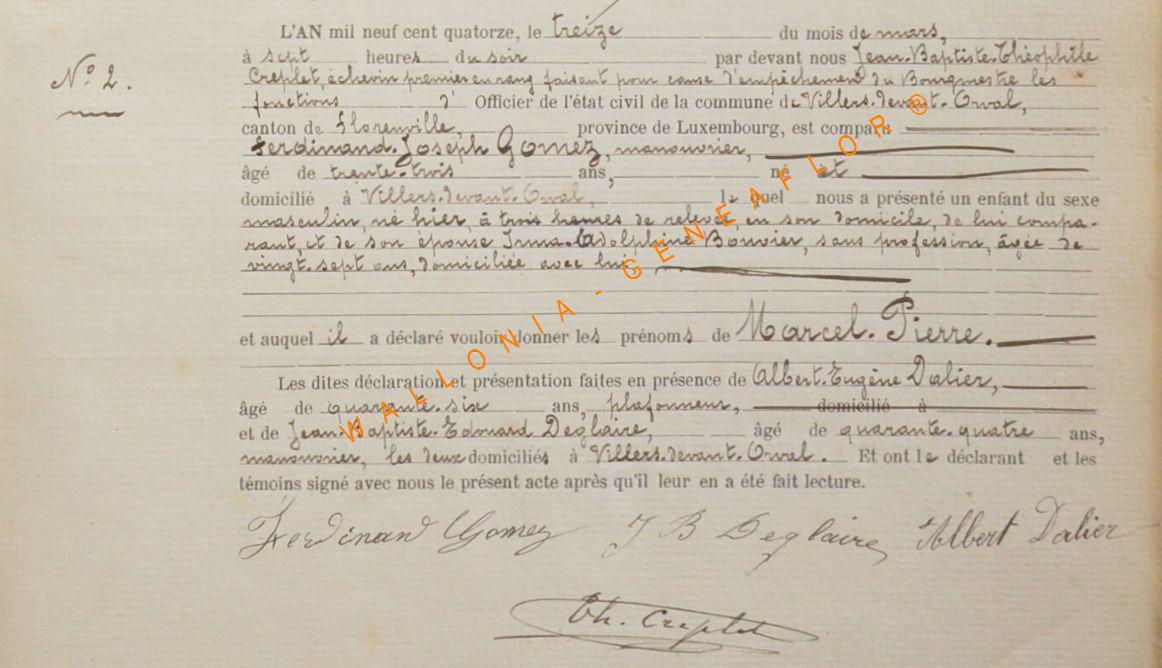 L'AN mil neuf cent quatorze, le treize du mois de mars,
N° 2.
à sept heures du soir par devant nous Jean-Baptiste-Théophile
Creplet, échevin premier en rang faisant pour cause d'empêchement du Bourgmestre les
fonctions d' Officier de l'état civil de la commune de Villers-devant-Orval,
canton de Florenville, province de Luxembourg, est comparu
Ferdinand-Joseph Gomez, manouvrier,
âgé de trente-trois ans, né et
domicilié à Villers-devant-Orval, lequel nous a présenté un enfant du sexe
masculin, né hier, à trois heures de relevée, en son domicile, de lui compa-
rant, et de son épouse Irma-Adolphine Bouvier, sans profession, âgée de
vingt-sept ans, domiciliée avec lui,
et auquel il a déclaré vouloir donner les prénoms de Marcel-Pierre.
Les dites déclaration et présentation faites en présence de Albert-Eugène Dalier,
âgé de quarante-six ans, plafonneur, domicilié à
et de Jean-Baptiste-Edouard Deglaire, âgé de quarante-quatre ans,
manouvrier, les deux domiciliés à Villers-devant-Orval. Et ont le déclarant et les
témoins signé avec nous le présent acte après qu'il leur en a été fait lecture.
Ferdinand Gomez J B Deglaire Albert Dalier
Th. Creplet
WALLONIA - GENEAFLOR ®